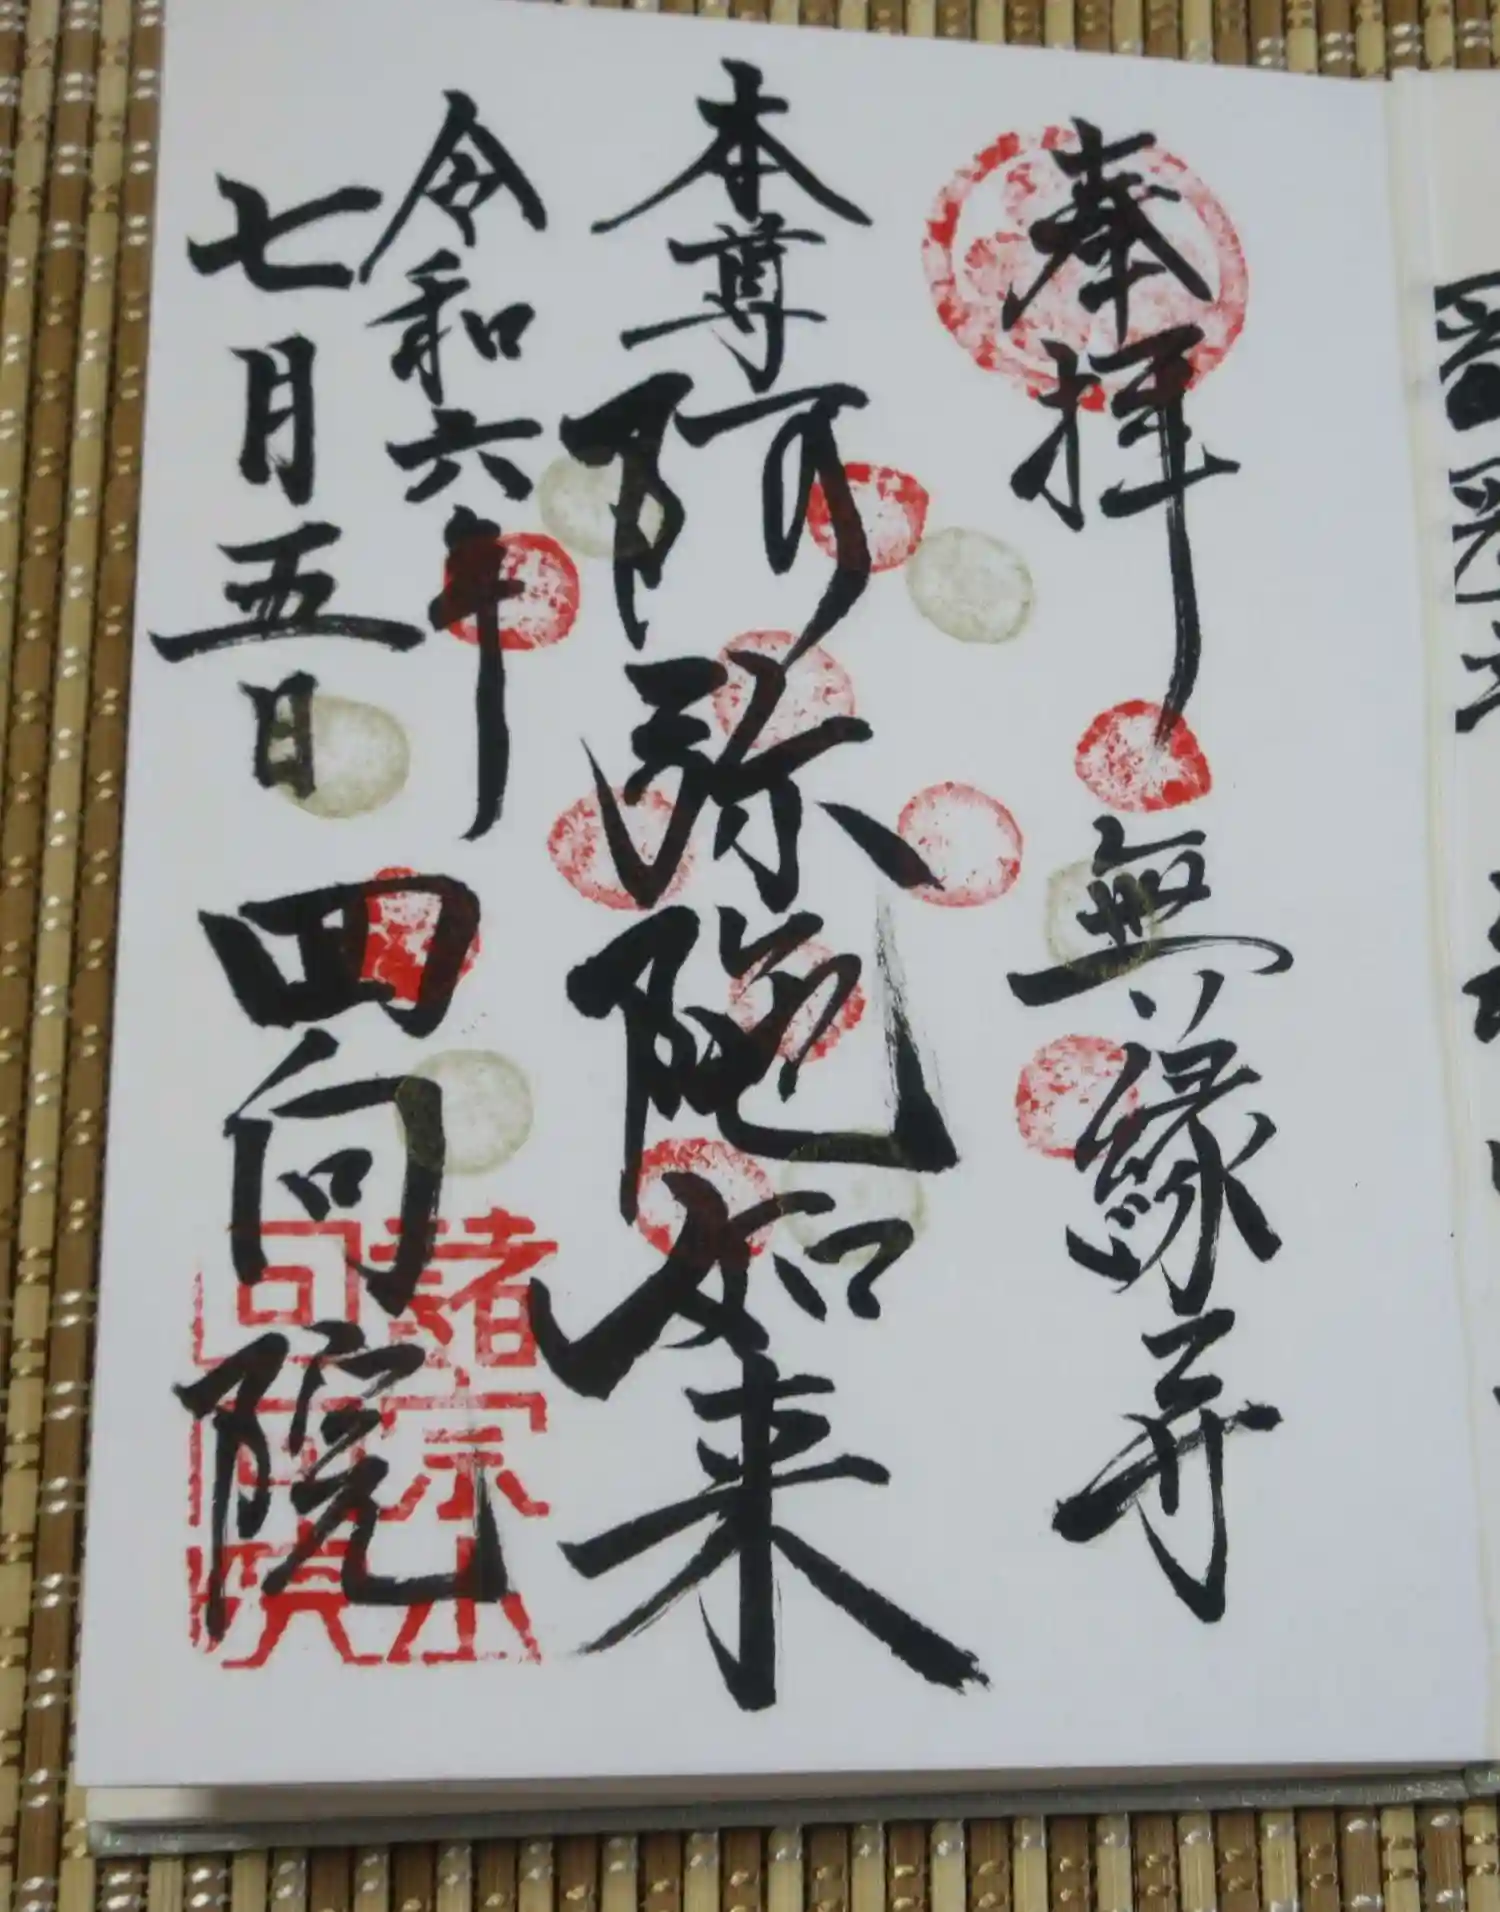 奉拝
無縁寺
本尊
阿弥陀如来
令和六年
七月五日
回向院
諸宗山
回向院